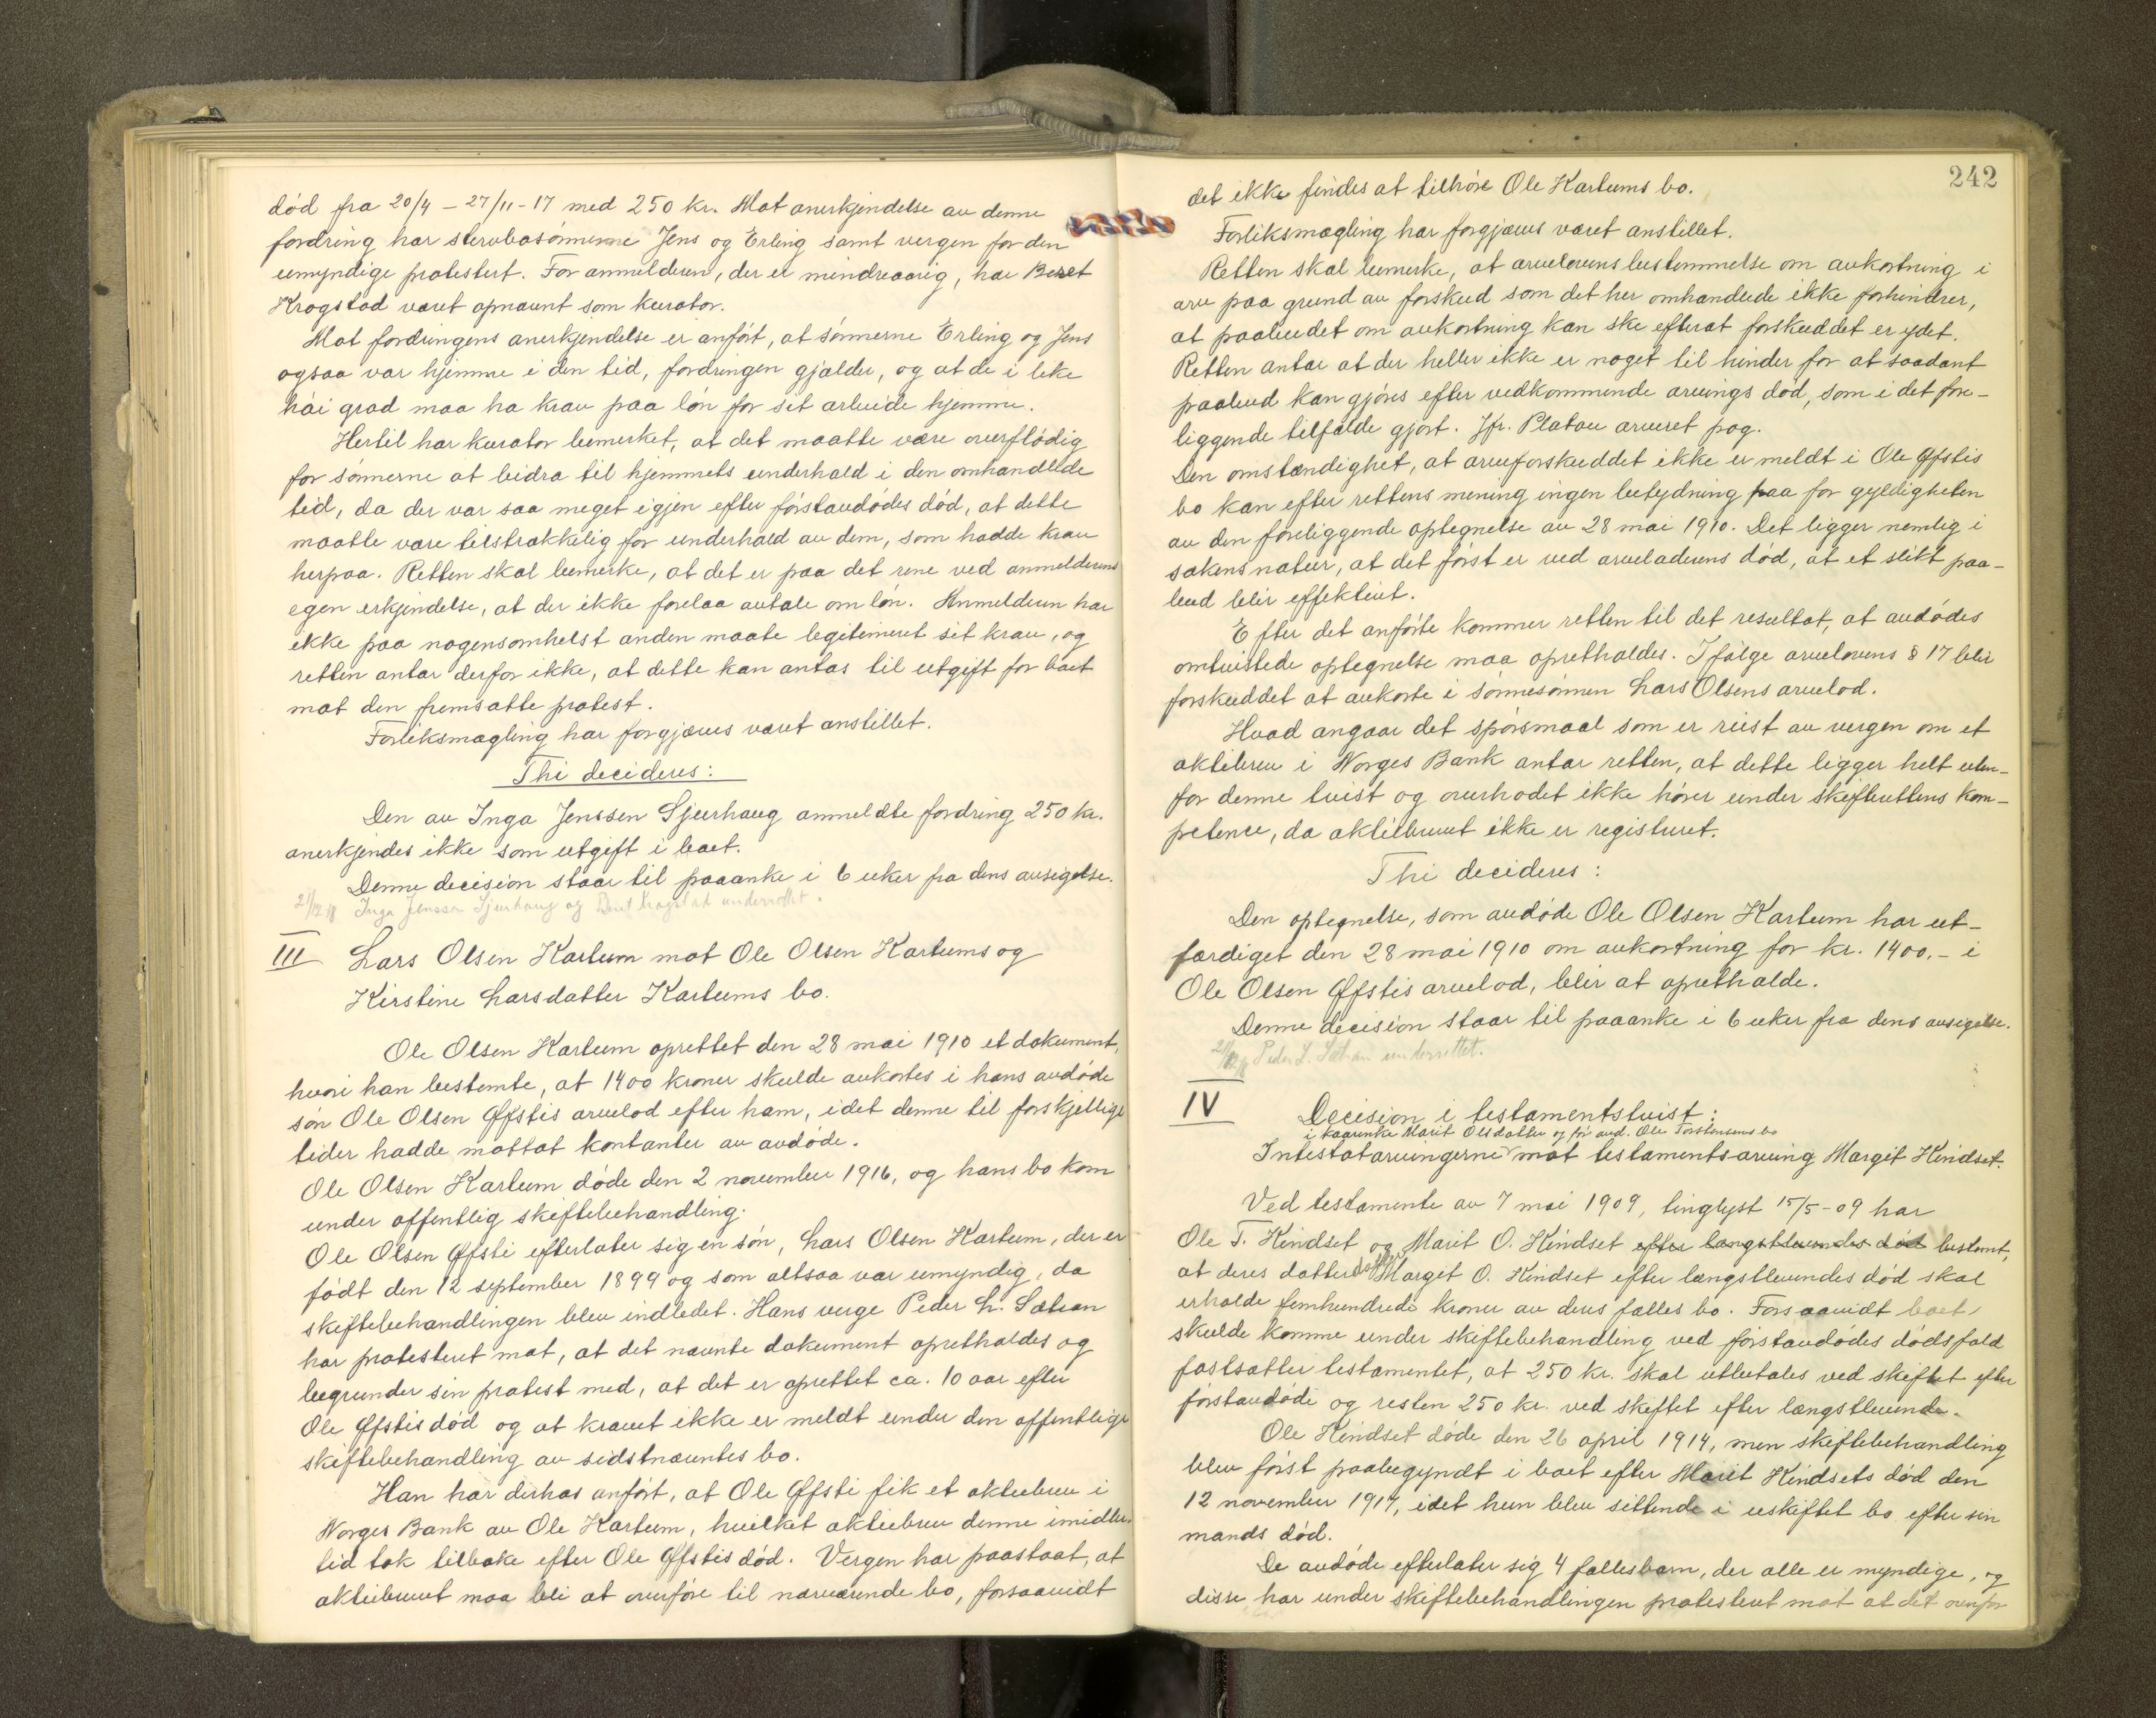 død fra 20/4 - 27/11 - 17 med 250 kr. Mot anerkjendelse av denne
fordring har stervbosønnerne Jens og Erling samt vergen for den
umyndige protestert. For anmelderen, der er mindreaarig, har Beret
Krogstad været opnævnt som kurator.
Mot fordringens anerkjendelse er anført, at sønnerne Erling og Jens
ogsaa var hjemme i den tid, fordringen gjælder, og at de i like
høi grad maa ha krav paa løn for sit arbeide hjemme.
Hertil har kurator bemerket, at det maatte være overflødig
for sønnerne at bidra til hjemmets underhold i den omhandlede
tid, da der var saa meget igjen efter førstavdødes død, at dette
maatte være tilstrækkelig for underhold av dem, som hadde krav
herpaa. Retten skal bemerke, at det er paa det rene ved anmelderens
egen erkjendelse, at der ikke forelaa avtale om løn. Anmelderen har
ikke paa nogensomhelst anden maate legitimeret sit krav, og
retten antar derfor ikke, at dette kan antas til utgift for boet
mot den fremsatte protest.
Forliksmægling har forgjæves været anstillet.
Thi decideres:
Den av Inga Jenssen Sjurhaug anmeldte fordring 250 kr.
anerkjendes ikke som utgift i boet.
Denne decision staar til paaanke i 6 uker fra dens avsigelse.
21/12 18 Inga Jenssen Sjurhaug og Beret Krogstad underrettet.
III Lars Olsen Kartum mot Ole Olsen Kartums og
Kirstine Larsdatter Kartums bo.
Ole Olsen Kartum oprettet den 28 mai 1910 et dokument,
hvori han bestemte, at 1400 kroner skulde avkortes i hans avdøde
søn Ole Olsen Øfstis arvelod efter ham, idet denne til forskjellige
tider hadde mottat kontanter av avdøde.
Ole Olsen Kartum døde den 2 november 1916, og hans bo kom
under offentlig skiftebehandling.
Ole Olsen Øfsti efterlater sig en søn, Lars Olsen Kartum, der er
født den 12 september 1899 og som altsaa var umyndig, da
skiftebehandlingen blev indledet. Hans verge Peder L. Sætran
har protestert mot, at det nævnte dokument opretholdes og
begrunder sin protest med, at det er oprettet ca. 10 aar efter
Ole Øfstis død og at kravet ikke er meldt under den offentlige
skiftebehandling av sidstnævntes bo.
Han har derhos anført, at Ole Øfsti fik et aktiebrev i
Norges Bank av Ole Kartum, hvilket aktiebrev denne imidler-
tid tok tilbake efter Ole Øfstis død. Vergen har paastaat, at
aktiebrevet maa bli at overføre til nærværende bo, forsaavidt
242
det ikke findes at tilhøre Ole Kartums bo.
Forliksmægling har forgjæves været anstillet.
Retten skal bemerke, at arvelovens bestemmelse om avkortning i
arv paa grund av forskud som det her omhandlede ikke forhindrer,
at paabudet om avkortning kan ske efterat forskuddet er ydet.
Retten antar at der heller ikke er noget til hinder for at saadant
paabud kan gjøres efter vedkommende arvings død, som i det fore-
liggende tilfælde gjort. Jfr. Platou arveret pag.
Den omstændighet, at arveforskuddet ikke er meldt i Ole Øfstis
bo kan efter rettens mening ingen betydning faa for gyldigheten
av den foreliggende optegnelse av 28 mai 1910. Det ligger nemlig i
sakens natur, at det først er ved arveladerens død, at et slikt paa-
bud blir effektivt.
Efter det anførte kommer retten til det resultat, at avdødes
omtvistede optegnelse maa opretholdes. Ifølge arvelovens § 17 blir
forskuddet at avkorte i sønnesønnen Lars Olsens arvelod.
Hvad angaar det spørsmaal som er reist av vergen om et
aktiebrev i Norges Bank antar retten, at dette ligger helt uten-
for denne tvist og overhodet ikke hører under skifterettens kom-
petence, da aktiebrevet ikke er registreret.
Thi decideres:
Den optegnelse, som avdøde Ole Olsen Kartum har ut-
færdiget den 28 mai 1910 om avkortning for kr. 1400.- i
Ole Olsen Øfstis arvelod, blir at opretholde.
Denne decision staar til paaanke i 6 uker fra dens avsigelse.
21/12 18 Peder L. Sætran underrettet.
IV Decision i testamentstvist:
i kaarenke Marit Olsdatter og før avd. Ole Torstensens bo
Intestatarvingerne mot testamentsarving Margit Kindset.
Ved testamente av 7 mai 1909, tinglyst 15/5-09 har
Ole T. Kindset og Marit O. Kindset efter længstlevendes død bestemt,
at deres datterdatter Margit O. Kindset efter længstlevendes død skal
erholde femhundrede kroner av deres fælles bo. Forsaavidt boet
skulde komme under skiftebehandling ved førstavdødes dødsfald
fastsætter testamentet, at 250 kr. skal utbetales ved skiftet efter
førstavdøde og resten 250 kr. ved skiftet efter længstlevende.
Ole Kindset døde den 26 april 1914, men skiftebehandling
blev først paabegyndt i boet efter Marit Kindsets død den
12 november 1917, idet hun blev sittende i uskiftet bo efter sin
mands død.
De avdøde efterlater sig 4 fællesbarn, der alle er myndige, og
disse har under skiftebehandlingen protestert mot at det ovenfor